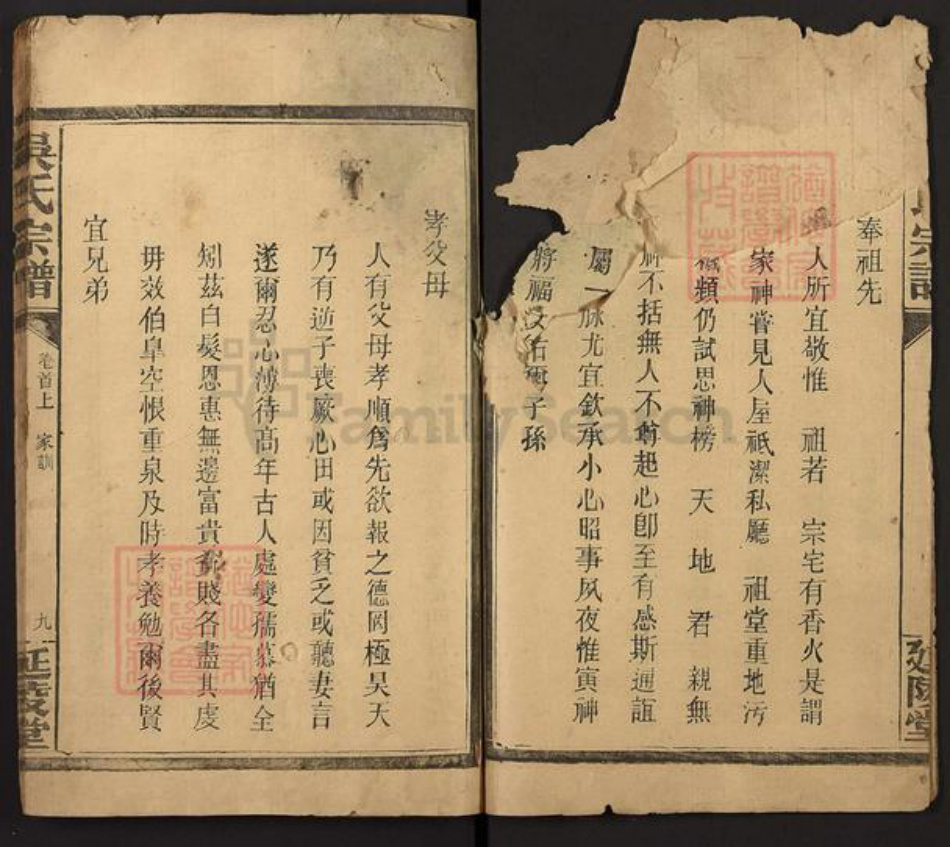 奉祖先
人所宜敬惟 祖若 宗宅有香火是謂
家神嘗見人屋祇潔私廳 祖堂重地污
穢頻仍試思神榜 天 地 君 親無
所不括無人不育起心卽至有感斯通誼
屬一脉尤宜欽承小心昭事夙夜惟寅神
將福汝佑 子孫
孝父母
人有父母孝順爲先欲報之德罔極昊天
乃有逆子喪厥心田或因貧乏或聽妻言
遂爾忍心薄待高年古人處變孺慕猶全
矧茲白髮恩惠無邊富貴貧賤各盡其虔
毋效伯臯空悵重泉及時孝養勉爾後賢
宜兄弟
吳氏宗譜
卷首上 家訓
九
延陵堂
氏宗譜
延陵堂
FamilySearch